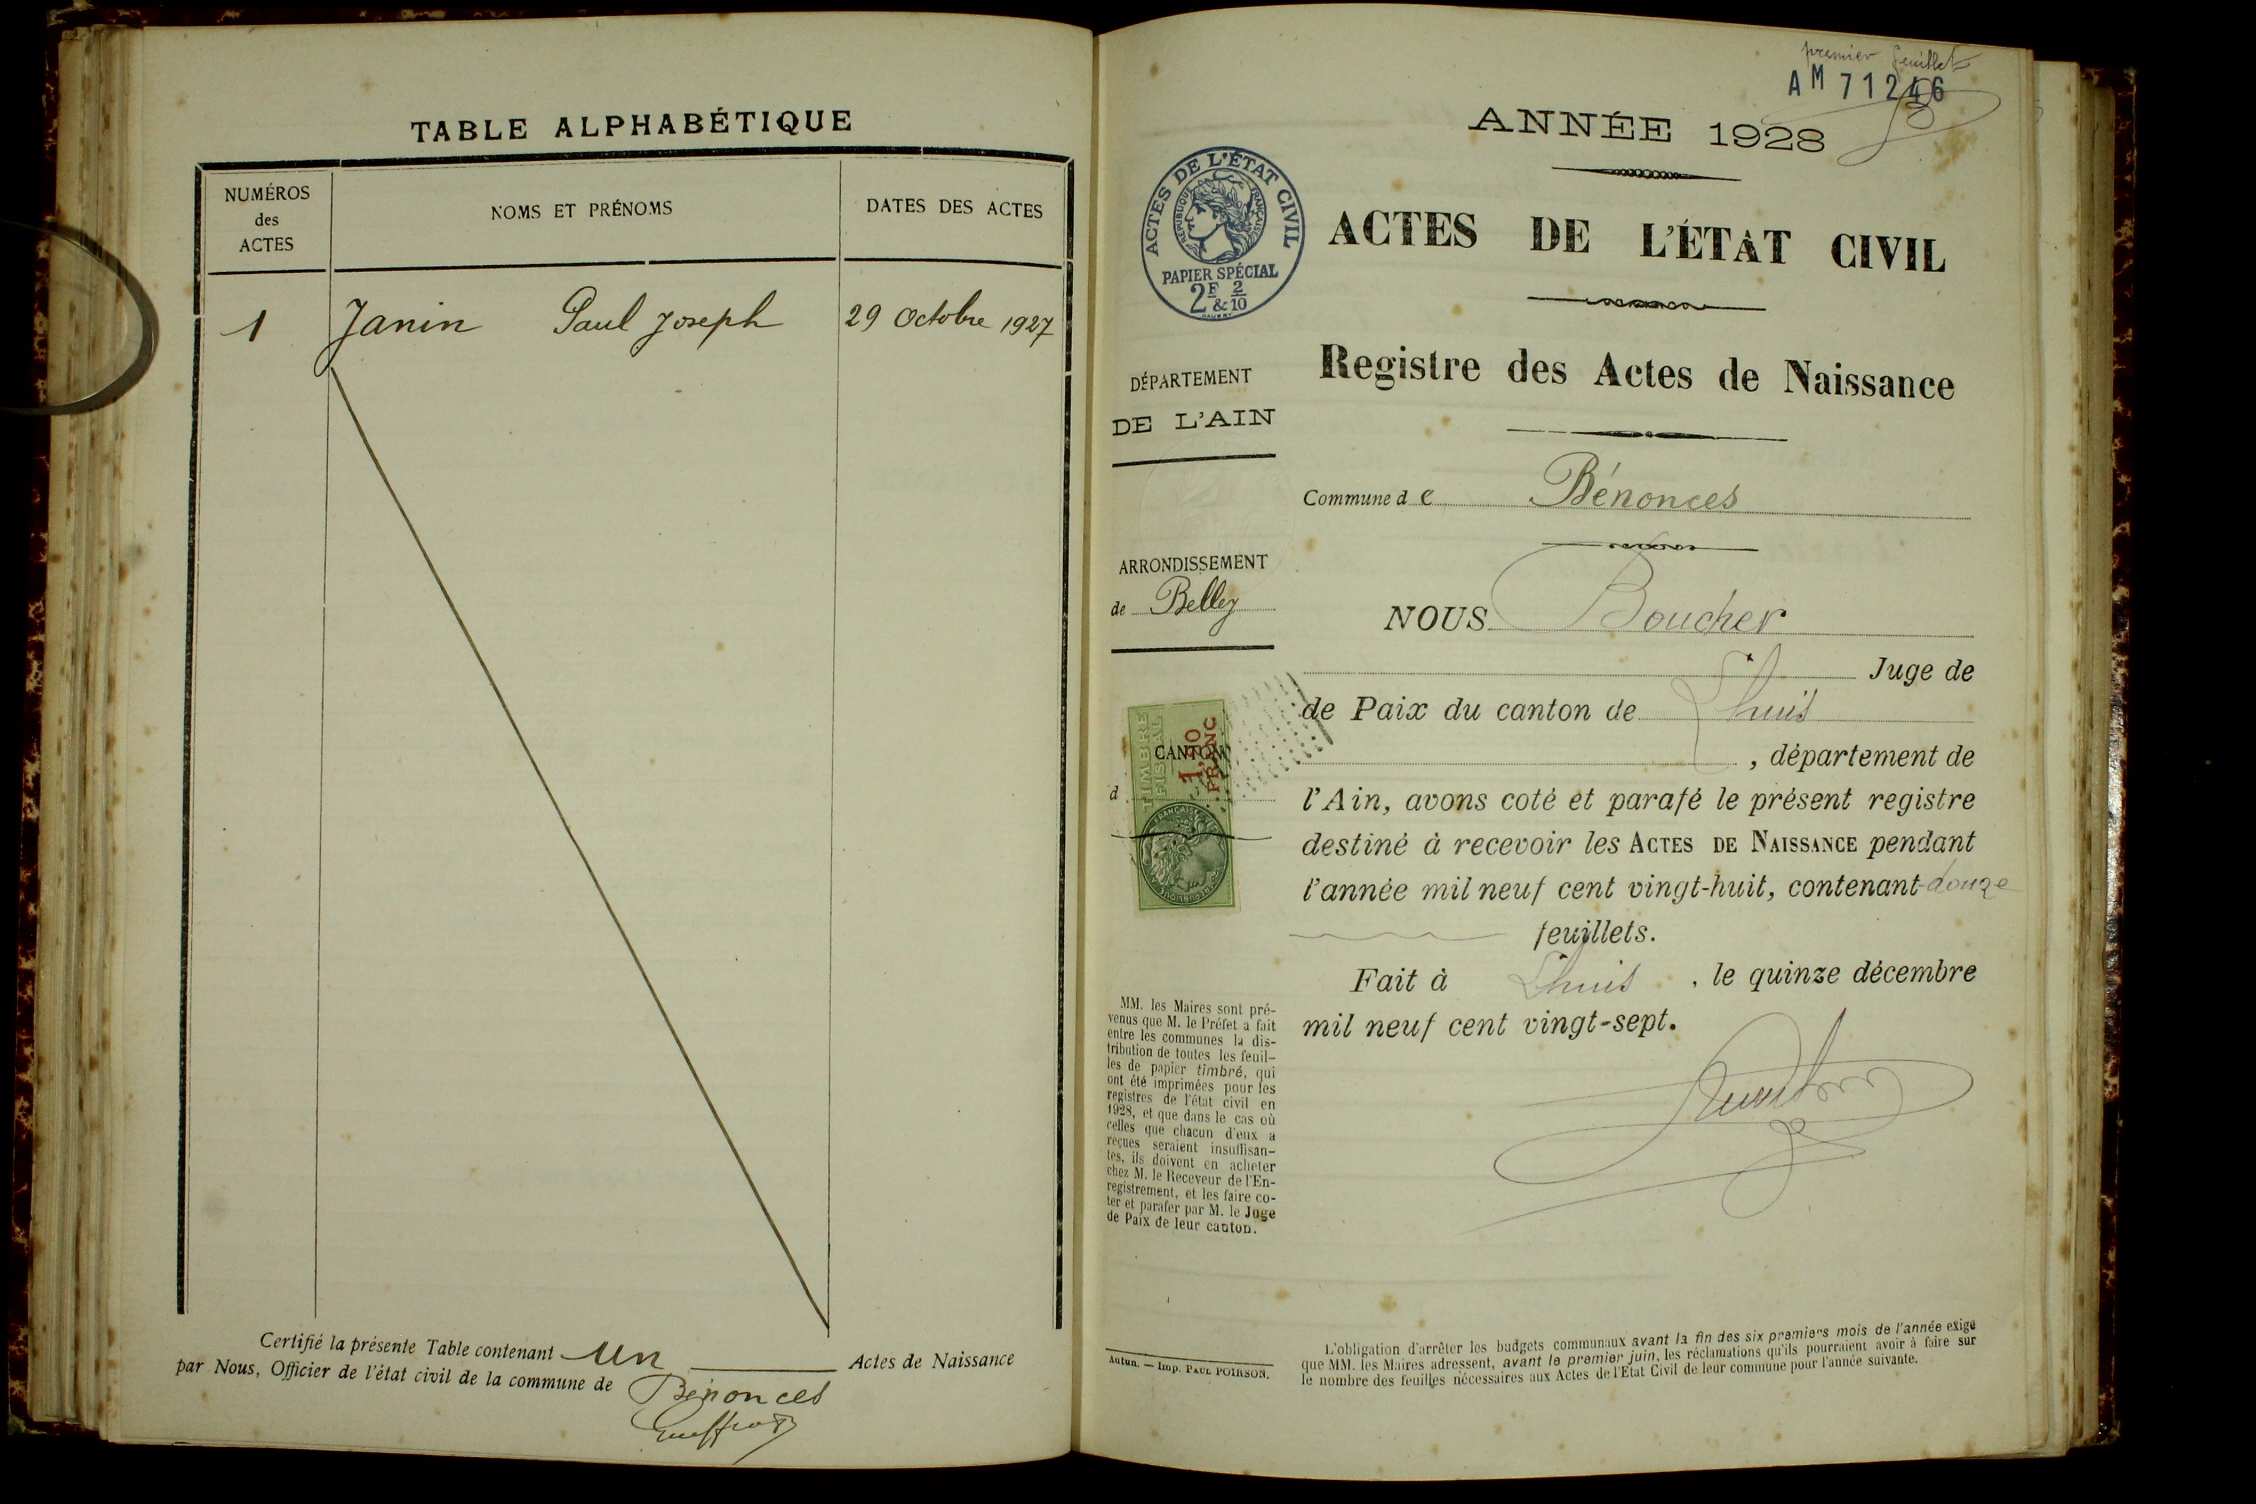 TABLE ALPHABÉTIQUE
NUMÉROS
des
ACTES
NOMS ET PRÉNOMS
DATES DES ACTES
1 Janin Paul Joseph 29 Octobre 1927
Certifié la présente Table contenant un Actes de Naissance
par Nous, Officier de l'état civil de la commune de Bénonces
premier feuillet
AM 71246
ANNÉE 1928
ACTES DE L'ÉTAT CIVIL
RÉPUBLIQUE FRANÇAISE
PAPIER SPÉCIAL
2F & 2/10
ACTES DE L'ÉTAT CIVIL
Registre des Actes de Naissance
DÉPARTEMENT
DE L'AIN
Commune de Bénonces
ARRONDISSEMENT
de Belley
NOUS Boucher
Juge de
de Paix du canton de Lhuis
, département de
l'Ain, avons coté et parafé le présent registre
destiné à recevoir les ACTES DE NAISSANCE pendant
l'année mil neuf cent vingt-huit, contenant douze
feuillets.
Fait à Lhuis , le quinze décembre
mil neuf cent vingt-sept.
CANTON
d
TIMBRE
FISCAL
FRANC
MM. les Maires sont pré-
venus que M. le Préfet a fait
entre les communes la dis-
tribution de toutes les feuil-
les de papier timbré, qui
ont été imprimées pour les
registres de l'état civil en
1928, et que dans le cas où
celles que chacun d'eux a
reçues seraient insuffisan-
tes, ils doivent en acheter
chez M. le Receveur de l'En-
registrement, et les faire co-
ter et parafer par M. le Juge
de Paix de leur canton.
Autun. — Imp. PAUL POIRSON.
L'obligation d'arrêter les budgets communaux avant la fin des six premiers mois de l'année exige
que MM. les Maires adressent, avant le premier juin, les réclamations qu'ils pourraient avoir à faire sur
le nombre des feuilles nécessaires aux Actes de l'Etat Civil de leur commune pour l'année suivante.